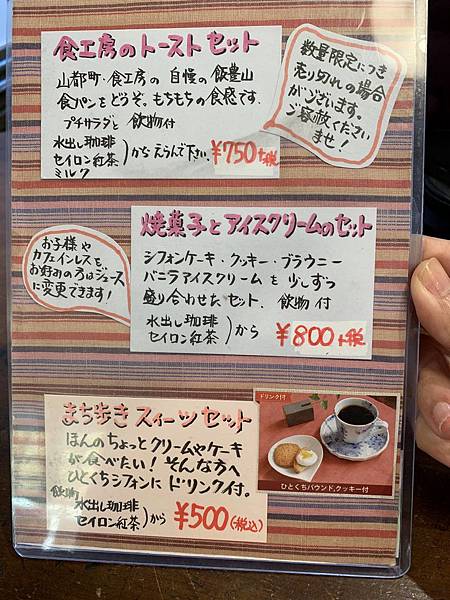 食工房のトーストセット
山都町・食工房の自慢の飯豊山
食パンをどうぞ。もちもちの食感です。
プチサラダと 飲物付
水出し珈琲
セイロン紅茶
ミルク
からえらんで下さい。
¥750+税
数量限定につき
売り切れの場合
がございます。
ご容赦ください
ませ!
焼菓子とアイスクリームのセット
シフォンケーキ・クッキー・ブラウニー
バニラアイスクリームを少しずつ
盛り合わせたセット。 飲物付
水出し珈琲
セイロン紅茶
から
¥800+税
お子様や
カフェインレスを
お好みの方はジュース
に変更できます!
まち歩きスィーツセット
ほんのちょっとクリームやケーキ
が食べたい!そんな方へ
ひとくちシフォンにドリンク付。
飲物
水出し珈琲
セイロン紅茶
から
¥500(税込)
ドリンク付
ひとくちパウンド,クッキー付